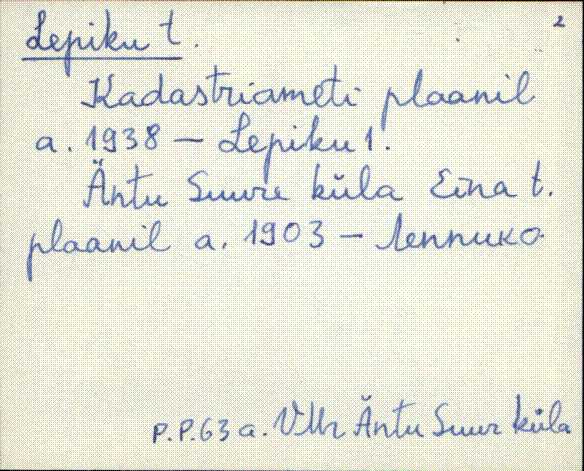 2
Lepiku t.
Kadastriameti plaanil
a. 1938 – Lepiku 1.
Äntu Suure küla Eina t.
plaanil a. 1903 – Леппико
P.P. 63 a. VMr Äntu Suur küla